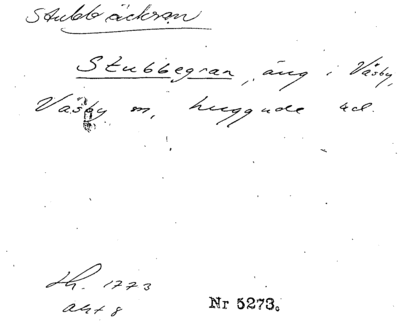 Stubbåckran
Stubbegran, äng i Väsby,
Väsby m, Luggude hd.
Lh. 1773
akt 8
Nr 5273.